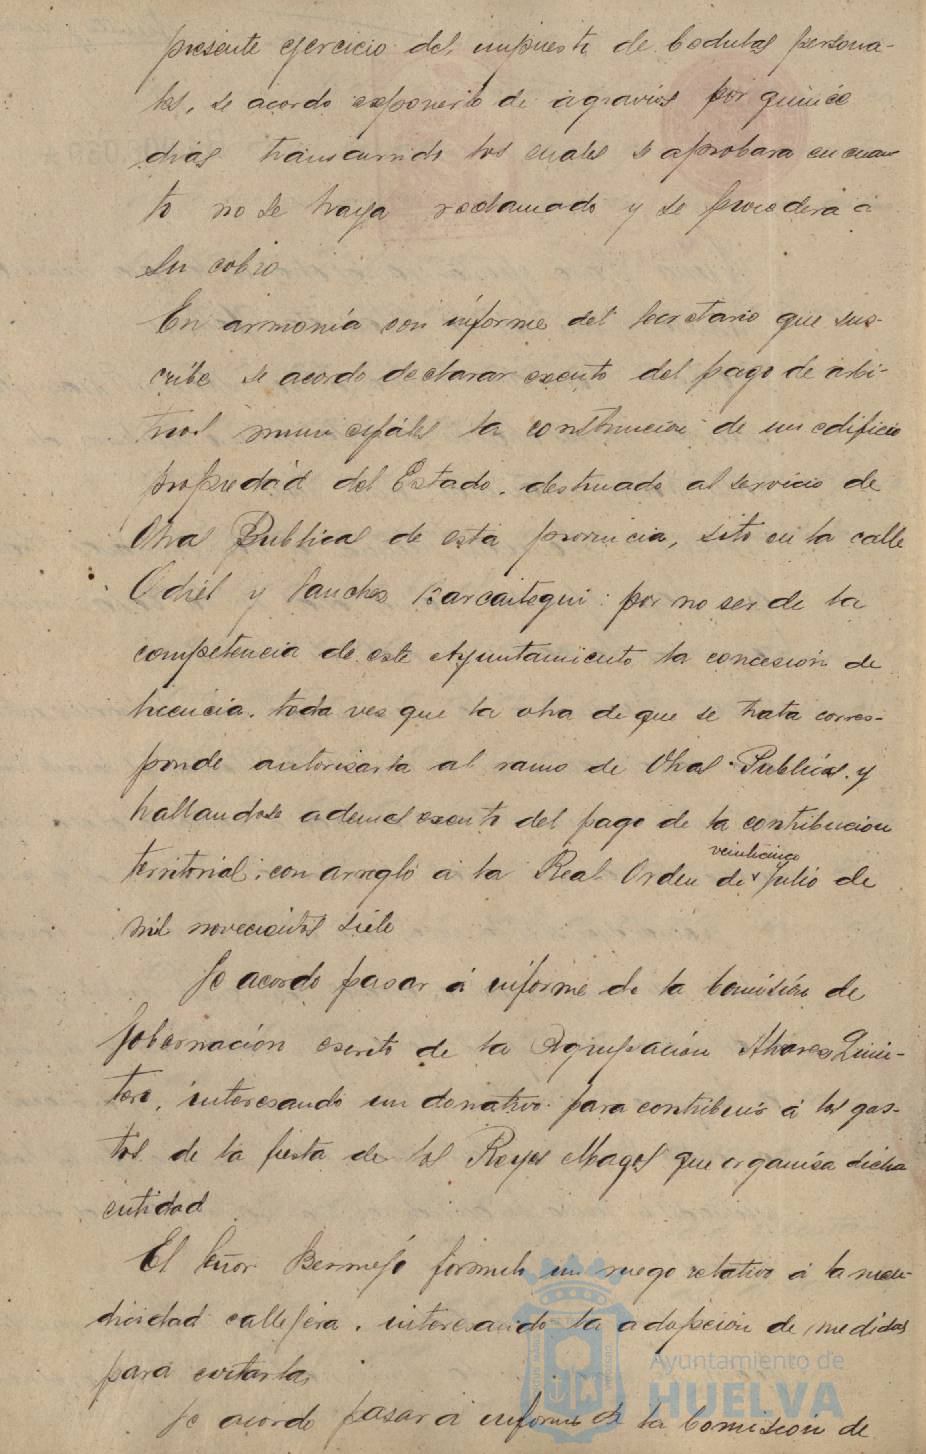 presente ejercicio del impuesto de Cedulas persona-
les, se acordo exponerlo de agravios por quince
dias transcurrido los cuales se aprobara en cuan
to no se haya reclamado y se procederá á
su cobro
En armonía con informe del Secretario que sus-
cribe se acordo declarar exento del pago de arbi-
trios municipales la construcción de un edificio
propiedad del Estado, destinado al servicio de
Obras Publicas de esta provincia, sito en la calle
Odiel y Sanchez Barcaiztegui: por no ser de la
competencia de este Ayuntamiento la concesión de
licencia, toda vez que la obra de que se trata corres-
ponde autorizarla al ramo de Obras Publicas y
hallandose ademas exento del pago de la contribución
veinticinco
territorial; con arreglo á la Real Orden de Julio de
mil novecientos siete
Se acordo pasar á informe de la Comisión de
Gobernación escrito de la Agrupación Alvarez Quin-
tero, interesando un donativo para contribuir á los gas-
tos de la fiesta de los Reyes Magos que organiza dicha
entidad
El Señor Bermejo formula un ruego relativo á la men-
dicidad callejera, interesando la adopción de medidas
para evitarla,
Se acordo pasar á informe de la Comisión de
Ayuntamiento de
HUELVA